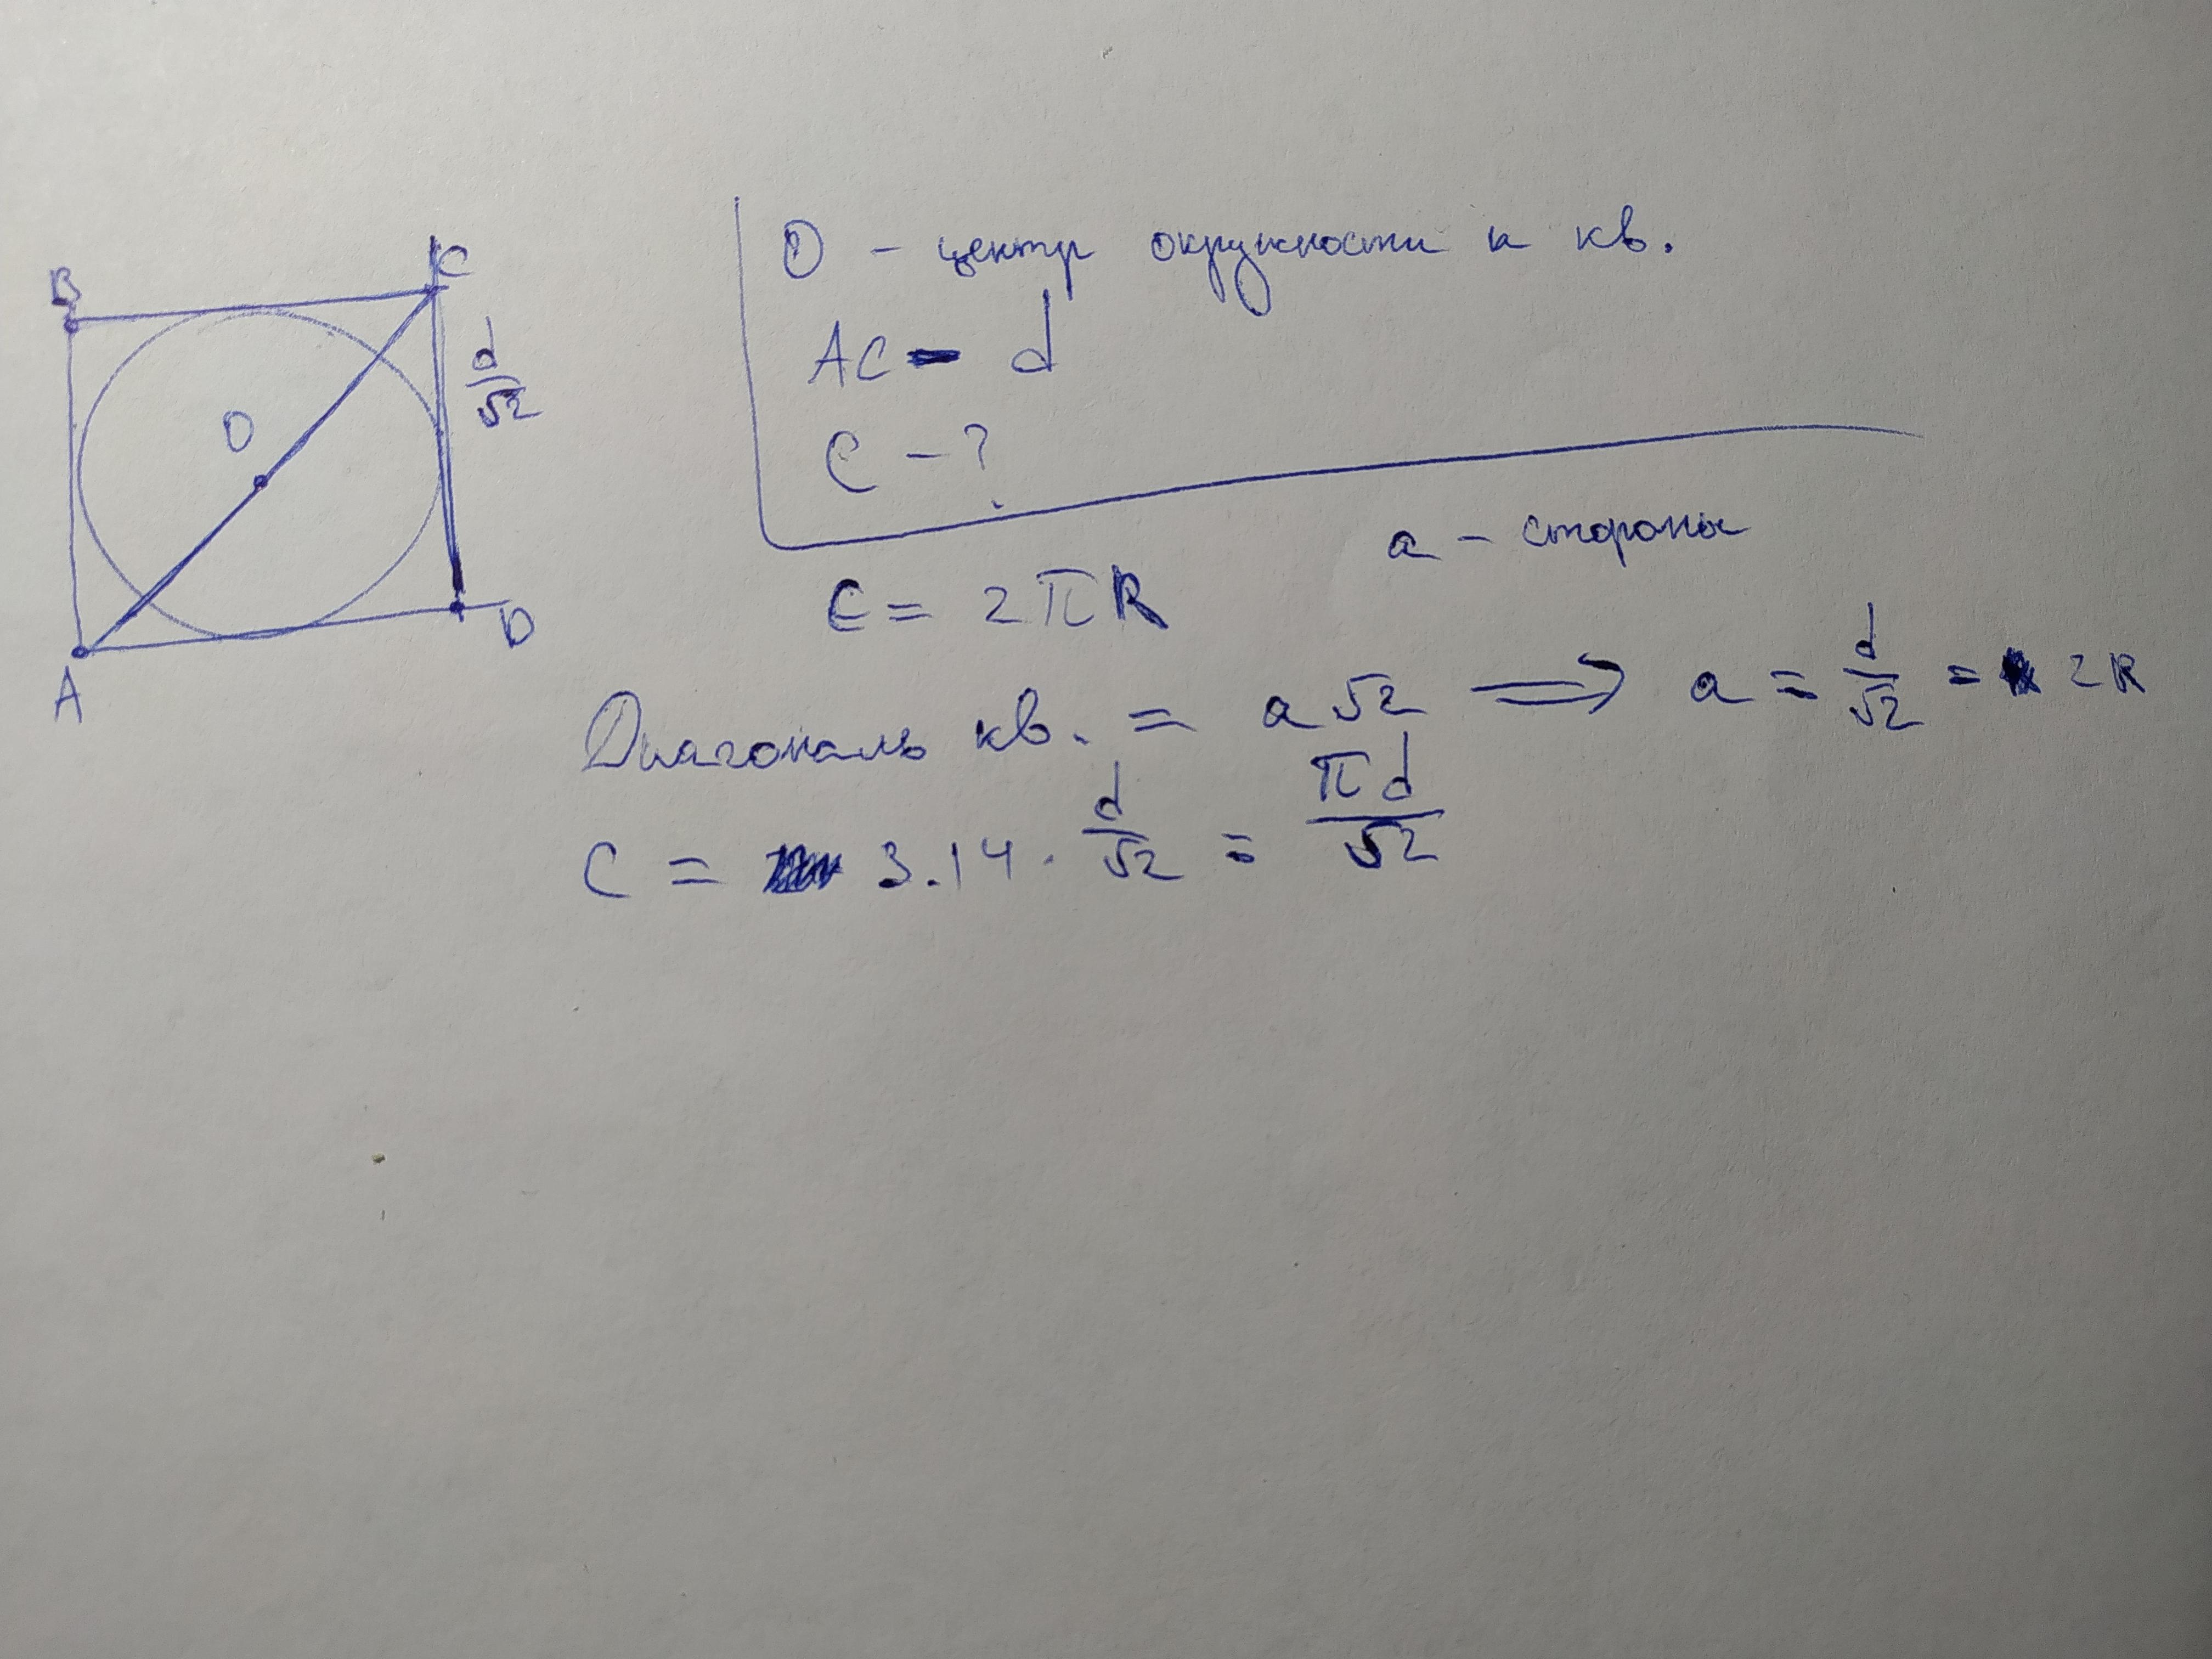 B
C
d/√2
O
A
D
O - центр окружности и кв.
AC - d
C - ?
a - сторона
C = 2πR
Диагональ кв. = a√2 ⟹ a = d/√2 = 2R
C = 3.14 · d/√2 = πd/√2